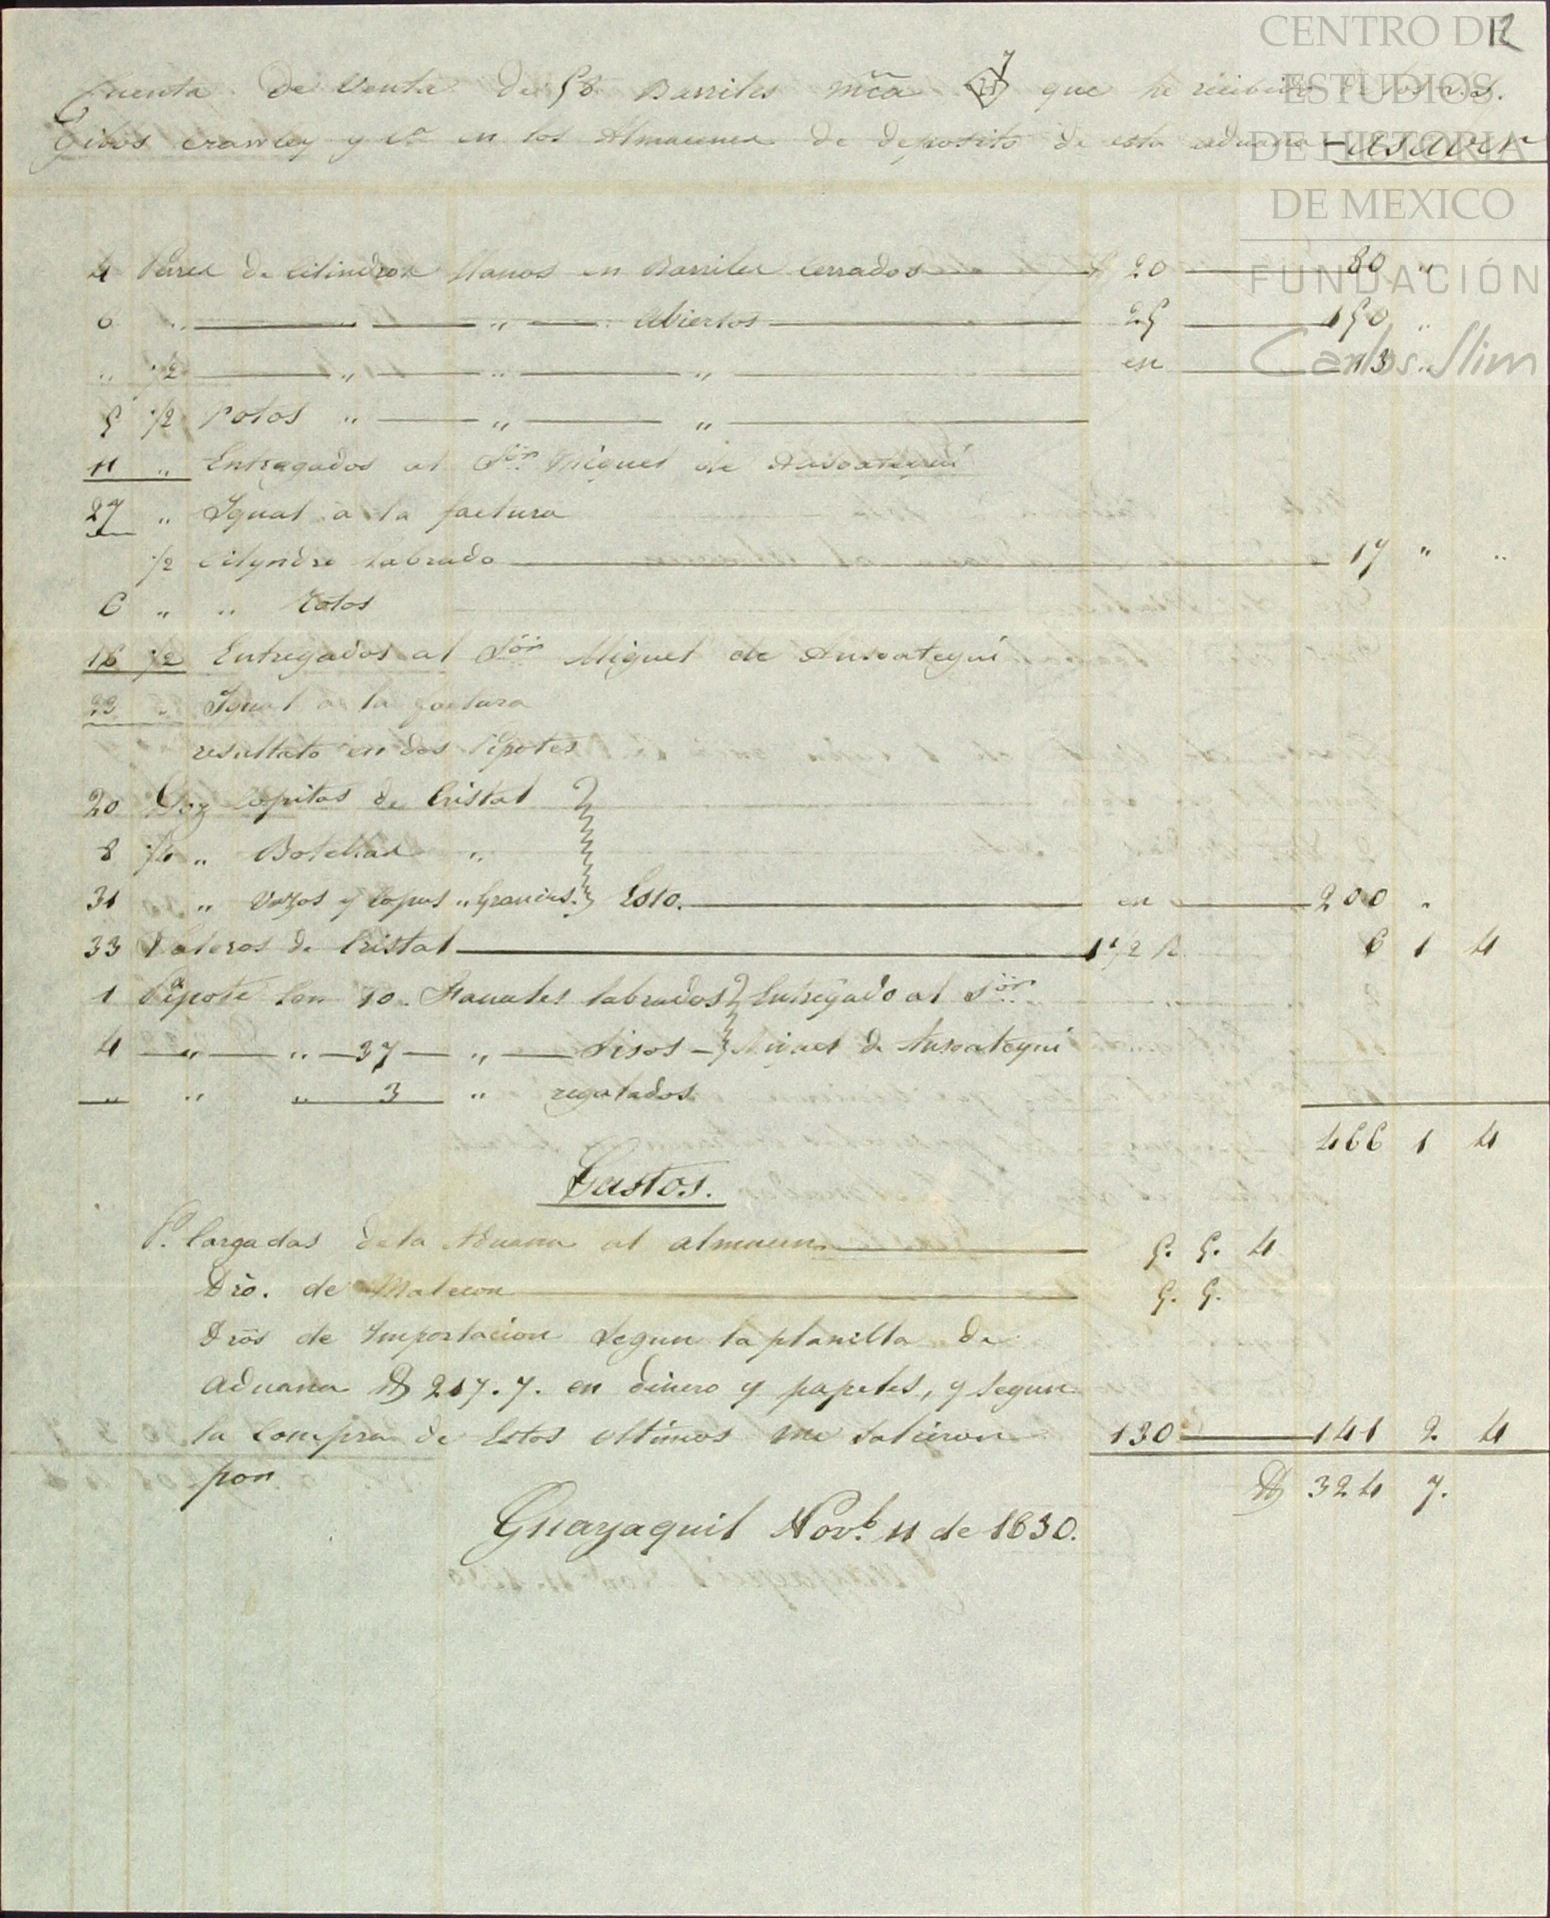 12
CENTRO DE
ESTUDIOS
DE HISTORIA
DE MEXICO
FUNDACIÓN
Carlos Slim
Cuenta de Venta de 58 Barriles mca 7 que he recibido de los S.S.
Gibbs Crawley y Ca en los Almacenes de deposito de esta aduana - asaver
4 Pares de Cilindros llanos en Barriles Cerrados $ 20 80 "
6 " " " Abiertos 25 150 "
" 1/2 " " " en 13 "
5 1/2 Rotos " " "
11 " Entregados al Sor. Miguel de Ansoategui
27 " Igual a la factura
1/2 Cilyndro Labrado 17 " "
6 " " Rotos
16 1/2 Entregados al Sor Miguel de Ansoategui
23 " Igual a la factura
resultato en dos Pipotes
20 Doz Copitas de Cristal
8 " Botellas "
31 " Vazos y Copas " Grandes. Esto. en 200 "
33 Saleros de Cristal 1 1/2 R 6 1 4
1 Pipote Con 10. Fanales labrados Entregado al Sor
4 " " 37 " Lisos - Miguel de Ansoategui
" " " 3 " regalados
466 1 4
Gastos.
P. Cargadas de la Aduana al almacen 5. 5. 4
Dro. de Malecon 5. 5.
Dros de Importacion Segun la planilla de
aduana $ 217.7. en dinero y papeles, y Segun
la Compra de Estos Ultimos me Salieron 130 141 2 4
por $ 324 7.
Guayaquil Novb. 11 de 1830.